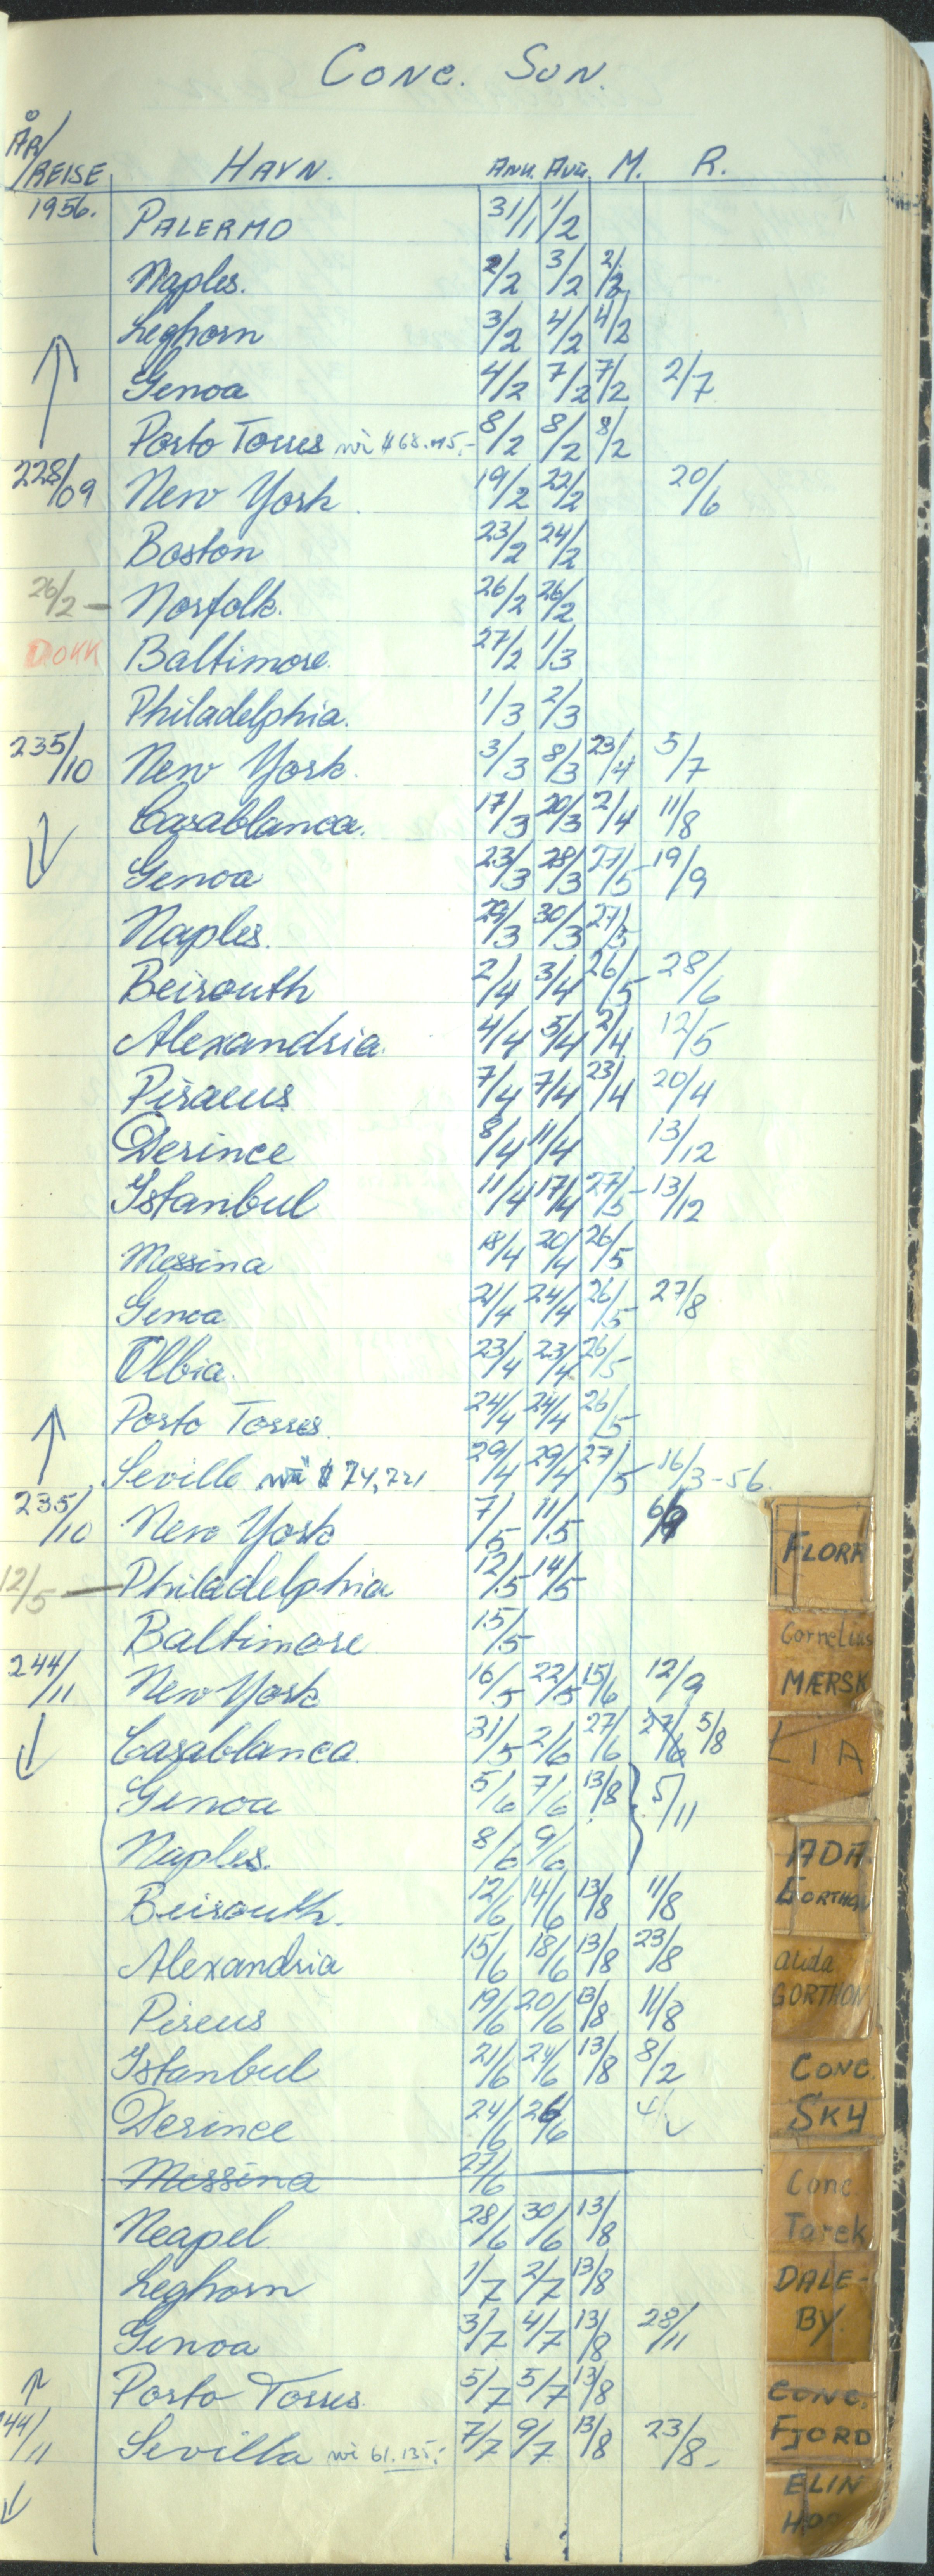 CONC. SUN.
ÅR/REISE HAVN. ANK. AVG. M. R.
1956. PALERMO 31/1 1/2
Naples. 2/2 3/2 2/2
Leghorn 3/2 4/2 4/2
Genoa 4/2 7/2 7/2 2/7
Porto Torres 8/2 8/2 8/2
228/09 New York 19/2 22/2 20/6
Boston 23/2 24/2
26/2 — Norfolk. 26/2 26/2
DOKK Baltimore. 27/2 1/3
Philadelphia. 1/3 2/3
235/10 New York. 3/3 8/3 23/4 5/7
Casablanca. 17/3 20/3 2/4 11/8
Genoa 23/3 28/3 27/5 19/9
Naples. 29/3 30/3 27/5
Beirouth 2/4 3/4 26/5 28/6
Alexandria. 4/4 5/4 2/4 12/5
Piraeus 7/4 7/4 23/4 20/4
Derince 8/4 11/4 13/12
Istanbul 11/4 17/4 27/5 13/12
Messina 18/4 20/4 26/5
Genoa 21/4 24/4 26/5 27/8
Olbia. 23/4 23/4 26/5
Porto Torres. 24/4 24/4 26/5
Seville 29/4 29/4 27/5 16/3-56.
235/10 New York 7/5 11/5
12/5 — Philadelphia 12/5 14/5
Baltimore 15/5
244/11 New York 16/5 22/5 15/6 12/9
Casablanca 31/5 2/6 27/6 27/6 5/8
Genoa 5/6 7/6 13/8 5/11
Naples. 8/6 9/6
Beirouth. 12/6 14/6 13/8 11/8
Alexandria 15/6 18/6 13/8 23/8
Pireus 19/6 20/6 13/8 11/8
Istanbul 21/6 24/6 13/8 8/2
Derince 24/6 26/6
Messina 27/6
Neapel 28/6 30/6 13/8
Leghorn 1/7 2/7 13/8
Genoa 3/7 4/7 13/8 28/11
Porto Torres. 5/7 5/7 13/8
44/11 Sevilla 61.135,- 7/7 9/7 13/8 23/8-
FLORA
Cornelius
MÆRSK
LIA
ADA
GORTHON
alida
GORTHON
CONC.
SKY
Conc.
Tarek
DALE-
BY.
CONC.
FJORD
ELIN